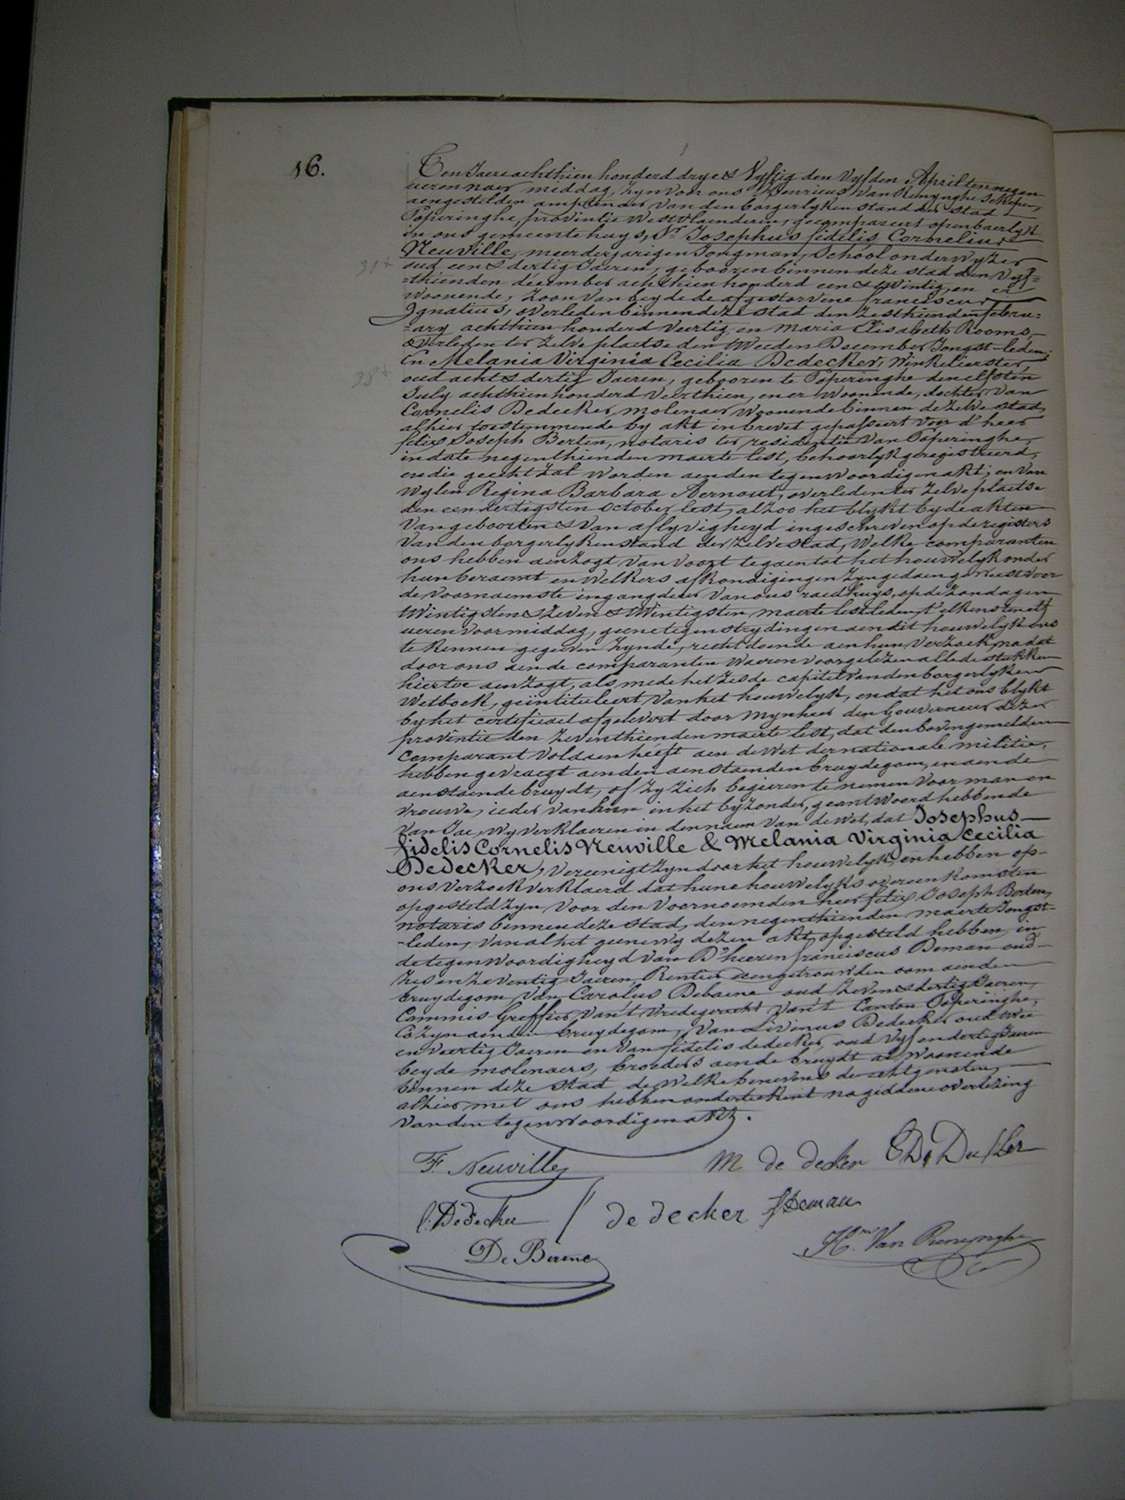 16.
Ten Jaere achthien honderd drye & Vyftig den Vyfden April ten negen
ueren naer middag, zyn voor ons Henricus Van Renynghe Schepen,
aengestelden amptender van den borgerlyken stand der stad
Poperinghe, provintie Westvlaenderen, gecompareert openbaerlyk
in ons gemeente huys, Sr Josephus fidelis Cornelius
Neuville, meerderjarigen Jongman, School onderwyzer
31+
oud een & dertig Jaeren, gebooren binnen deze stad den Vyf-
thienden december achthien honderd een & twintig, en er
Woonende, Zoon van beyde de afgestorvene franciscus
Ignatius, overleden binnen deze stad den zesthienden febru-
ary achthien honderd Veertig, en Maria Elisabeth Rooms
overleden ter zelve plaetse den tweeden December Jongst-leden;
En Melania Virginia Cecilia Dedecker, Winkelierster,
38+
oud acht & dertig Jaeren, gebooren te Poperinghe den elfsten
July achthien honderd Veerthien, en er Woonende, dochter van
Cornelis Dedecker, molenaer Woonende binnen dezelve stad,
alhier toestemmende by akt in brevet gepasseert voor d'heer
felix Joseph Berten, notaris ter residentie van Poperinghe,
in date negenthienden maerte lest, behoorlyk geregistreerd,
en die gehecht zal worden aen den tegenwoordigen akt; en van
Wylen Regina Barbara Aernout, overleden ter zelve plaetse
den een dertigsten October lest, alzoo het blykt by de akten
van geboorten & van aflyvigheyd ingeschreven op de registers
van den borgerlyken stand der zelve stad, Welke comparanten
ons hebben aenzogt, van voort te gaen tot het houwelyk onder
hun beraemt en welkers afkondigingen zyn gedaen geweest voor
de voornaemste ingang deur van ons raedhuys, op de zondagen
twintigsten & zeven & twintigsten maerte lest leden, t'elkens ten elf
ueren voormiddag, geene tegenstrydingen aen dit houwelyk ons
te kennen gegeven zynde, recht doende aen hun verzoek, na dat
door ons aen de comparanten waeren voorgelezen alle de stukken
hier toe aenzogt, als mede het zesde capitel van den borgerlyken
Wetboek, geintituleert, van het houwelyk, en dat het ons blykt
by het certificaet afgelevert door mynheer den Gouverneur dezer
provintie den zeventhienden maerte lest, dat den bovengemelden
comparant voldaen heeft aen de wet der nationale militie,
hebben gevraegt aen den aenstaenden bruydegom, en aen de
aenstaende bruydt, of zy zich begieren te nemen voor man en
vrouwe, ieder van hun in het byzonder, geantwoord hebbende
van Jae, wy verklaeren in den naem van de wet, dat Josephus
fidelis Cornelis Neuville & Melania Virginia Cecilia
Dedecker, vereenigt zyn door het houwelyk, en hebben op
ons verzoek verklaerd dat hune houwelyks overeenkomsten
opgesteld zyn voor den voornoemden heer felix Joseph Berten,
notaris binnen deze stad, den negenthienden maerte Jongst-
-leden, van al het gene wy dezen akt opgesteld hebben, in
de tegenwoordigheyd van D'heeren franciscus Deman oud
zes en zeventig Jaeren, Rentier aengetrouwden oom aen den
bruydegom van Carolus Debaene oud zeven & dertig Jaeren,
Commis Greffier van 't Vredegerecht van 't Canton Poperinghe,
Cozyn aen den bruydegom, van Livinus Dedecker oud twee
en veertig Jaeren en van fidelis dedecker, oud vyf en dertig Jaeren
beyde molenaers, broeders aen de bruydt al woonende
binnen deze stad de welke benevens de echtgenoten
alhier, met ons hebben onderteekent na gedaene voorlezing
van den tegenwoordigen akt.
F. Neuville M de decker C De Decker
L. Dedecker f de decker f Deman
De Baene H. Van Renynghe